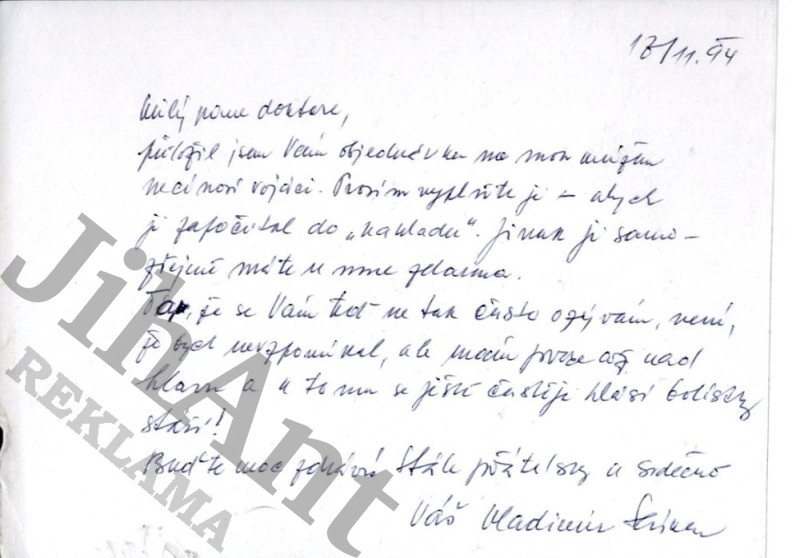 17/11.94
Milý pane doktore,
přiložil jsem Vám objednávku na mou knížku
nečinoví vojáci. Prosím vyplňte ji – abych
ji započítal do „nákladu". Jinak ji samo-
zřejmě máte u mne zdarma.
To, že se Vám teď ne tak často ozývám, není,
že bych nevzpomínal, ale mám práce až nad
hlavu a k tomu se ještě častěji hlásí bolístky
stáří!
Buďte moc zdráv! Stále přátelsky a srdečně
Váš Vladimír
JihAnt
REKLAMA